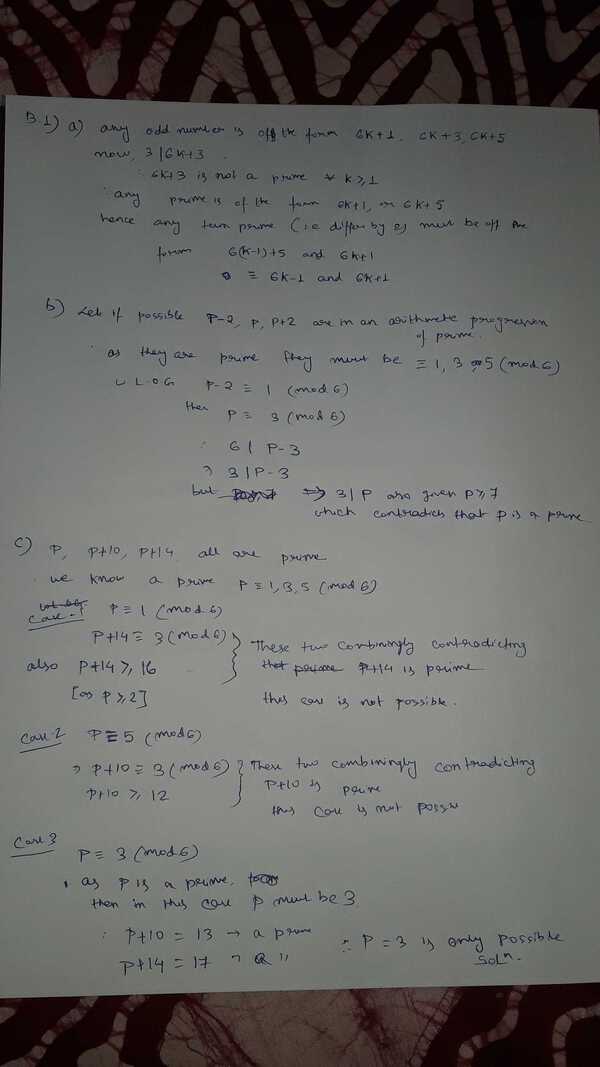 B.1) a) any odd number is off the form 6K+1, 6K+3, 6K+5
now, 3|6K+3.
∴ 6K+3 is not a prime ∀ K≥1
∴ any prime is of the form 6K+1, or 6K+5
hence any twin prime (i.e differ by 2) must be off the
form 6(K-1)+5 and 6K+1
≡ 6K-1 and 6K+1
b) Let if possible P-2, P, P+2 are in an arithmetic progression
of prime.
∴ as they are prime they must be ≡ 1, 3 or 5 (mod 6)
W L.O.G P-2 ≡ 1 (mod 6)
then P ≡ 3 (mod 6)
∴ 6 | P-3
⇒ 3 | P-3
but ⇒ 3|P also given P≥7
which contradicts that P is a prime
c) P, P+10, P+14 all are prime
∴ we know a prime P ≡ 1, 3, 5 (mod 6)
Case-1 P ≡ 1 (mod 6)
P+14 ≡ 3 (mod 6) } These two combiningly contradicting
also P+14 ≥ 16 that prime P+14 is prime
[as P≥2] this case is not possible.
Case-2 P ≡ 5 (mod 6)
⇒ P+10 ≡ 3 (mod 6) } These two combiningly contradicting
P+10 ≥ 12 P+10 is prime
this case is not possi
Case 3
P ≡ 3 (mod 6)
as P is a prime.
then in this case P must be 3
∴ P+10 = 13 → a prime ∴ P = 3 is only possible
P+14 = 17 → a " Solⁿ.